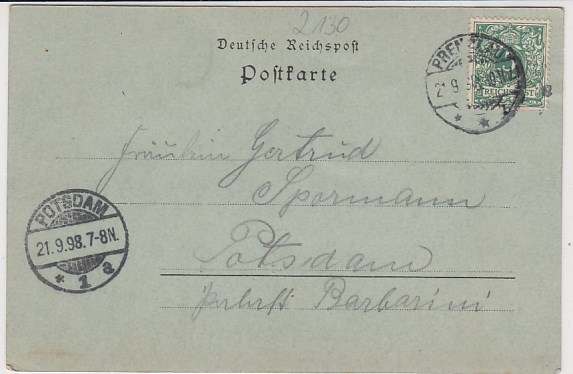 2130
Deutsche Reichspost
Postkarte
PRENZLAU
REICHSPOST
Fräulein Gertrud
Spormann
Potsdam
Barbarini
POTSDAM
21.9.98.7-8N.
* 1 a